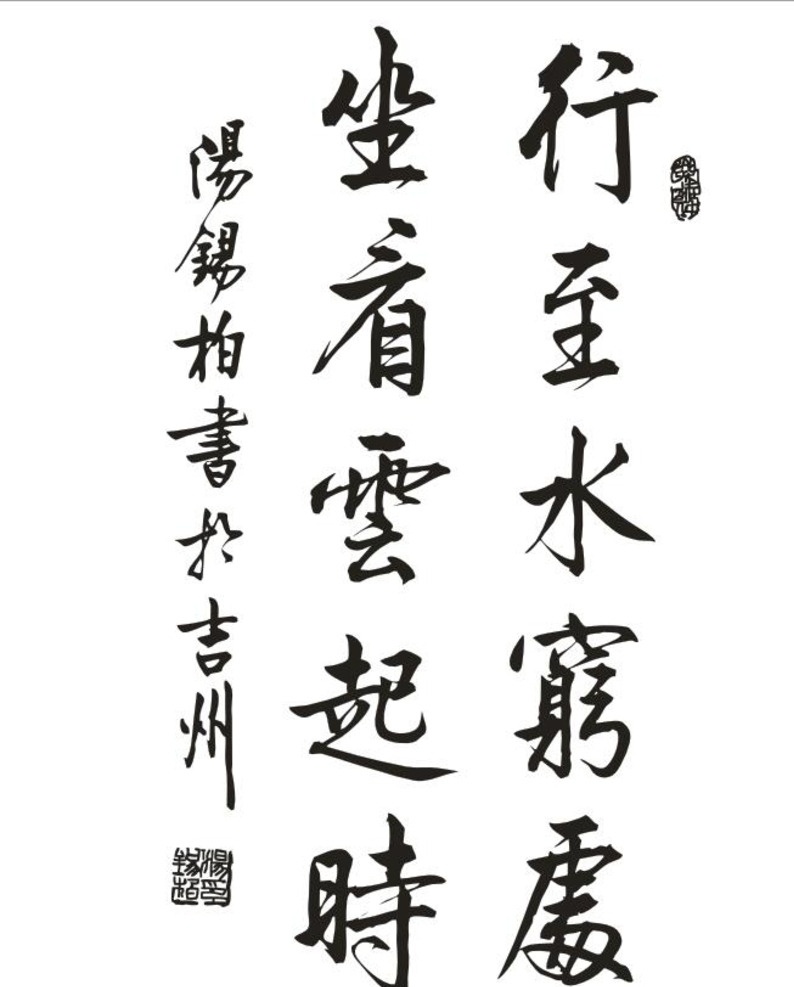 行至水窮處
坐看雲起時
陽錫柏書於吉州